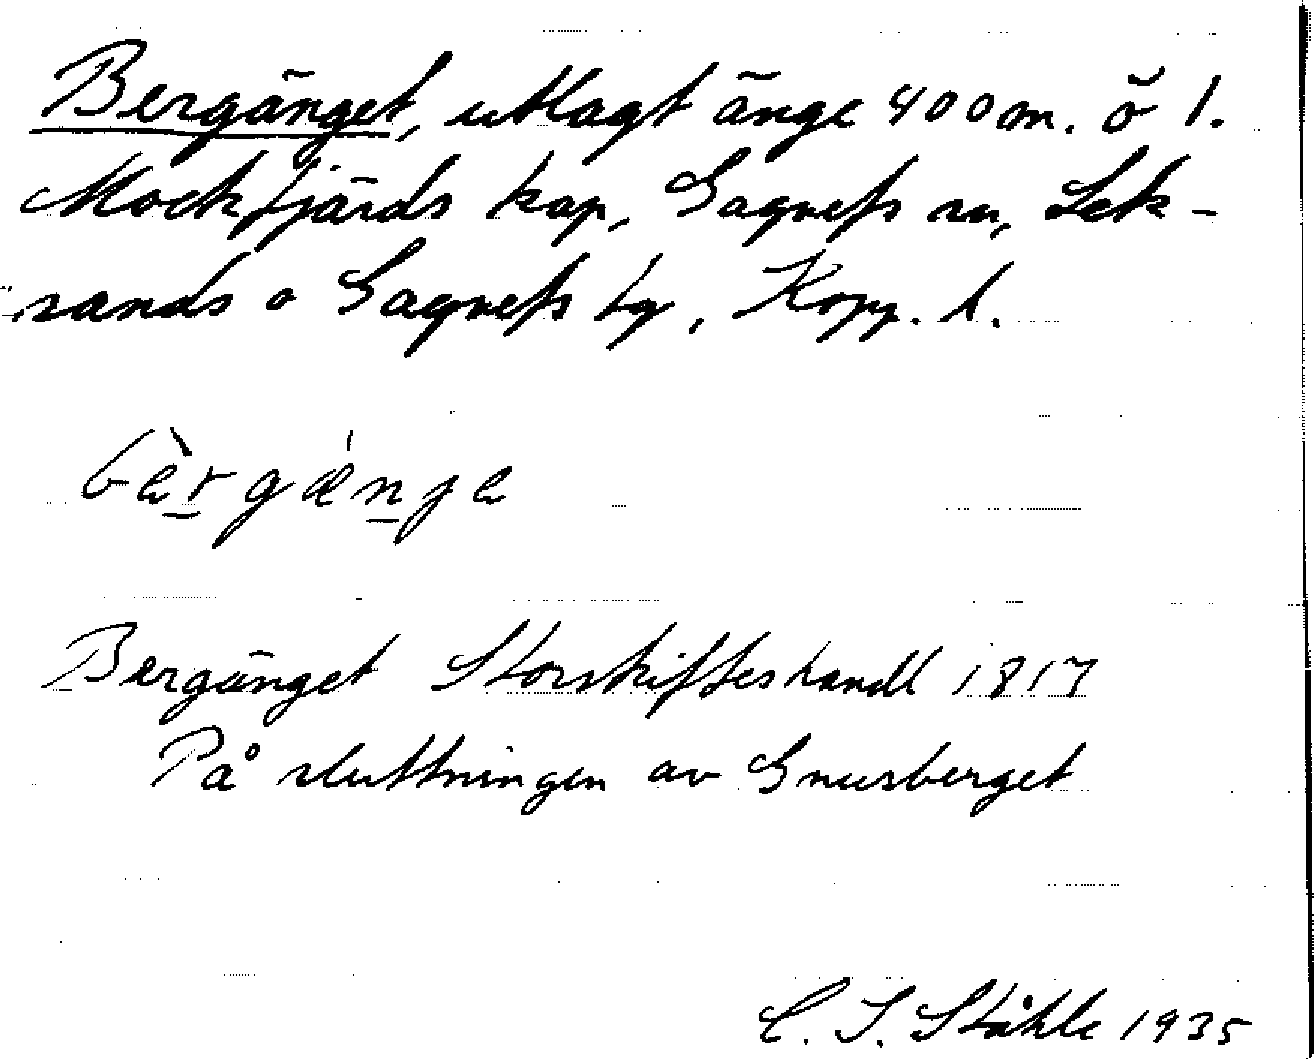 Bergänget, utlagt änge 400 m. ö 1.
Mockfjärds kap, Gagnefs sn, Lek-
sands o Gagnefs tg, Kopp. l.
bèrgǽnja
Bergänget Storskifteshandl 1817
På sluttningen av Gnusberget
C. I. Ståhle 1935